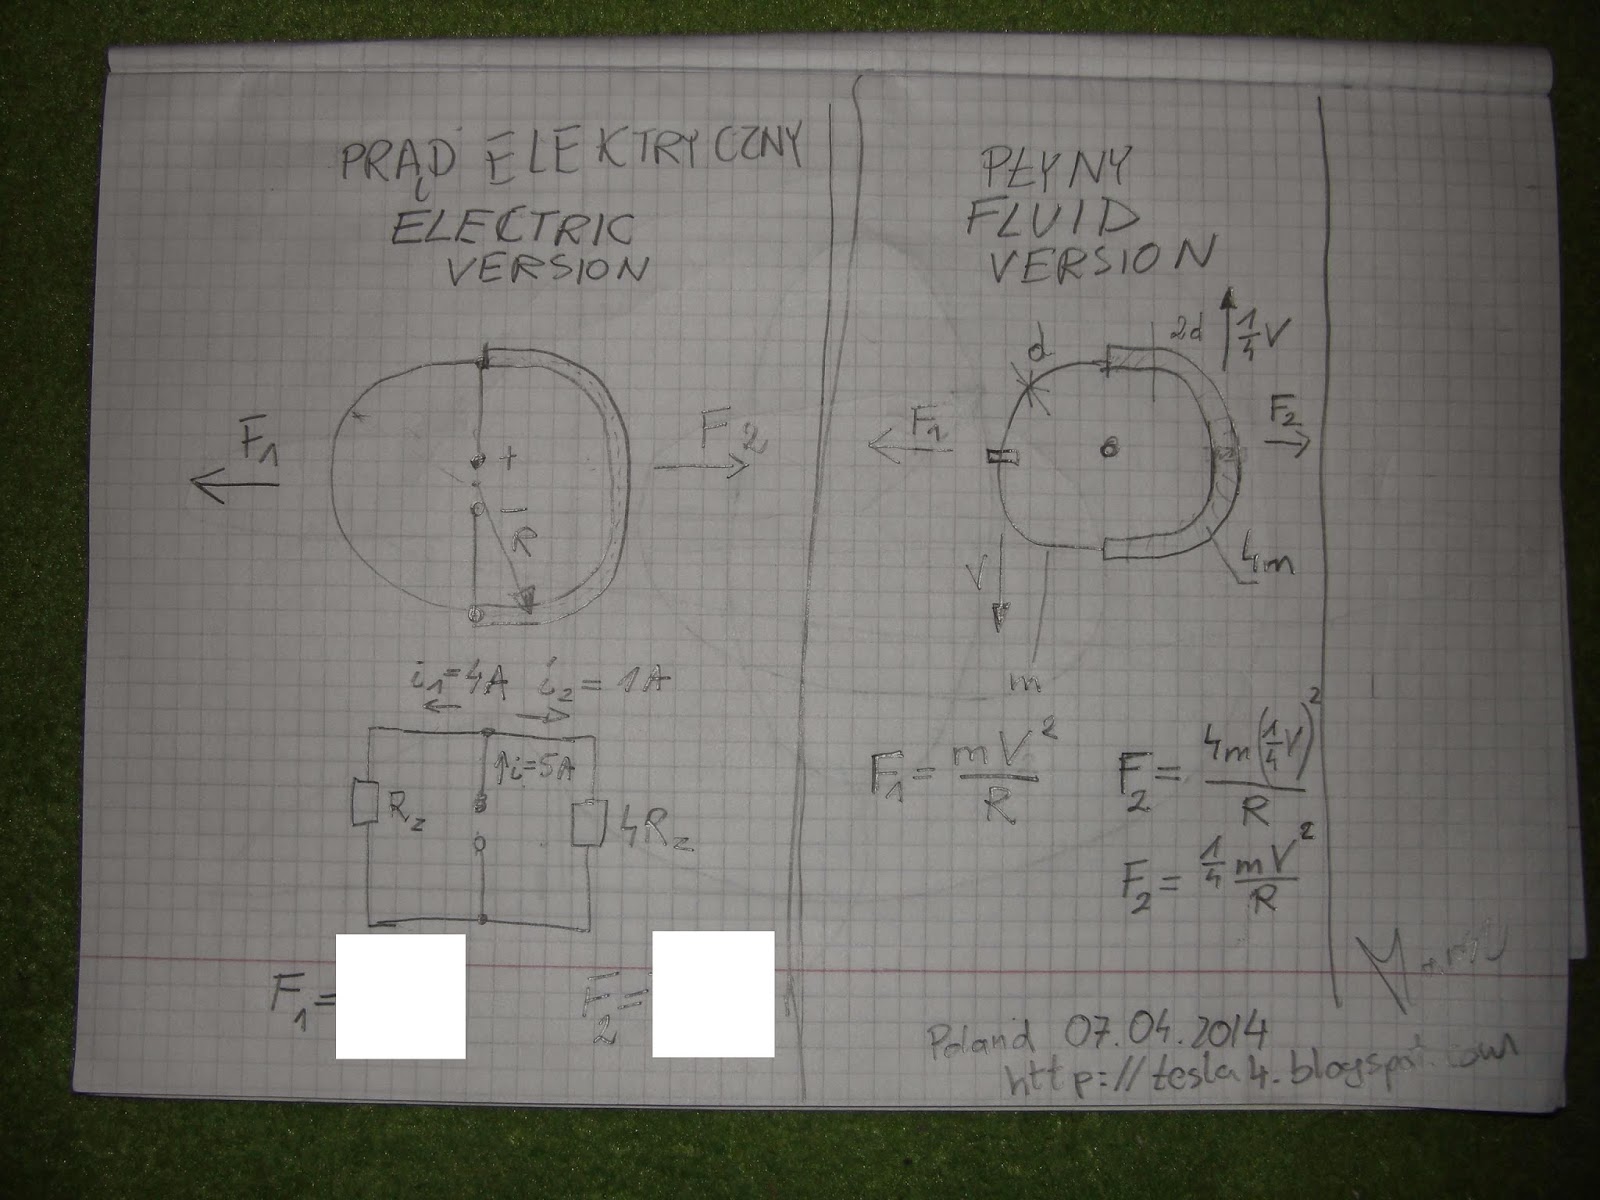 PRĄD ELEKTRYCZNY
ELECTRIC
VERSION
F1
F2
+
-
R
i1=4A i2=1A
↑i=5A
Rz
4Rz
F1=
F2=
PŁYNY
FLUID
VERSION
d
2d
1/4 V
F1
F2
V
4m
m
F1 = mV²/R
F2 = 4m(1/4 V)²/R
F2 = 1/4 mV²/R
Poland 07.04.2014
http://tesla4.blogspot.com